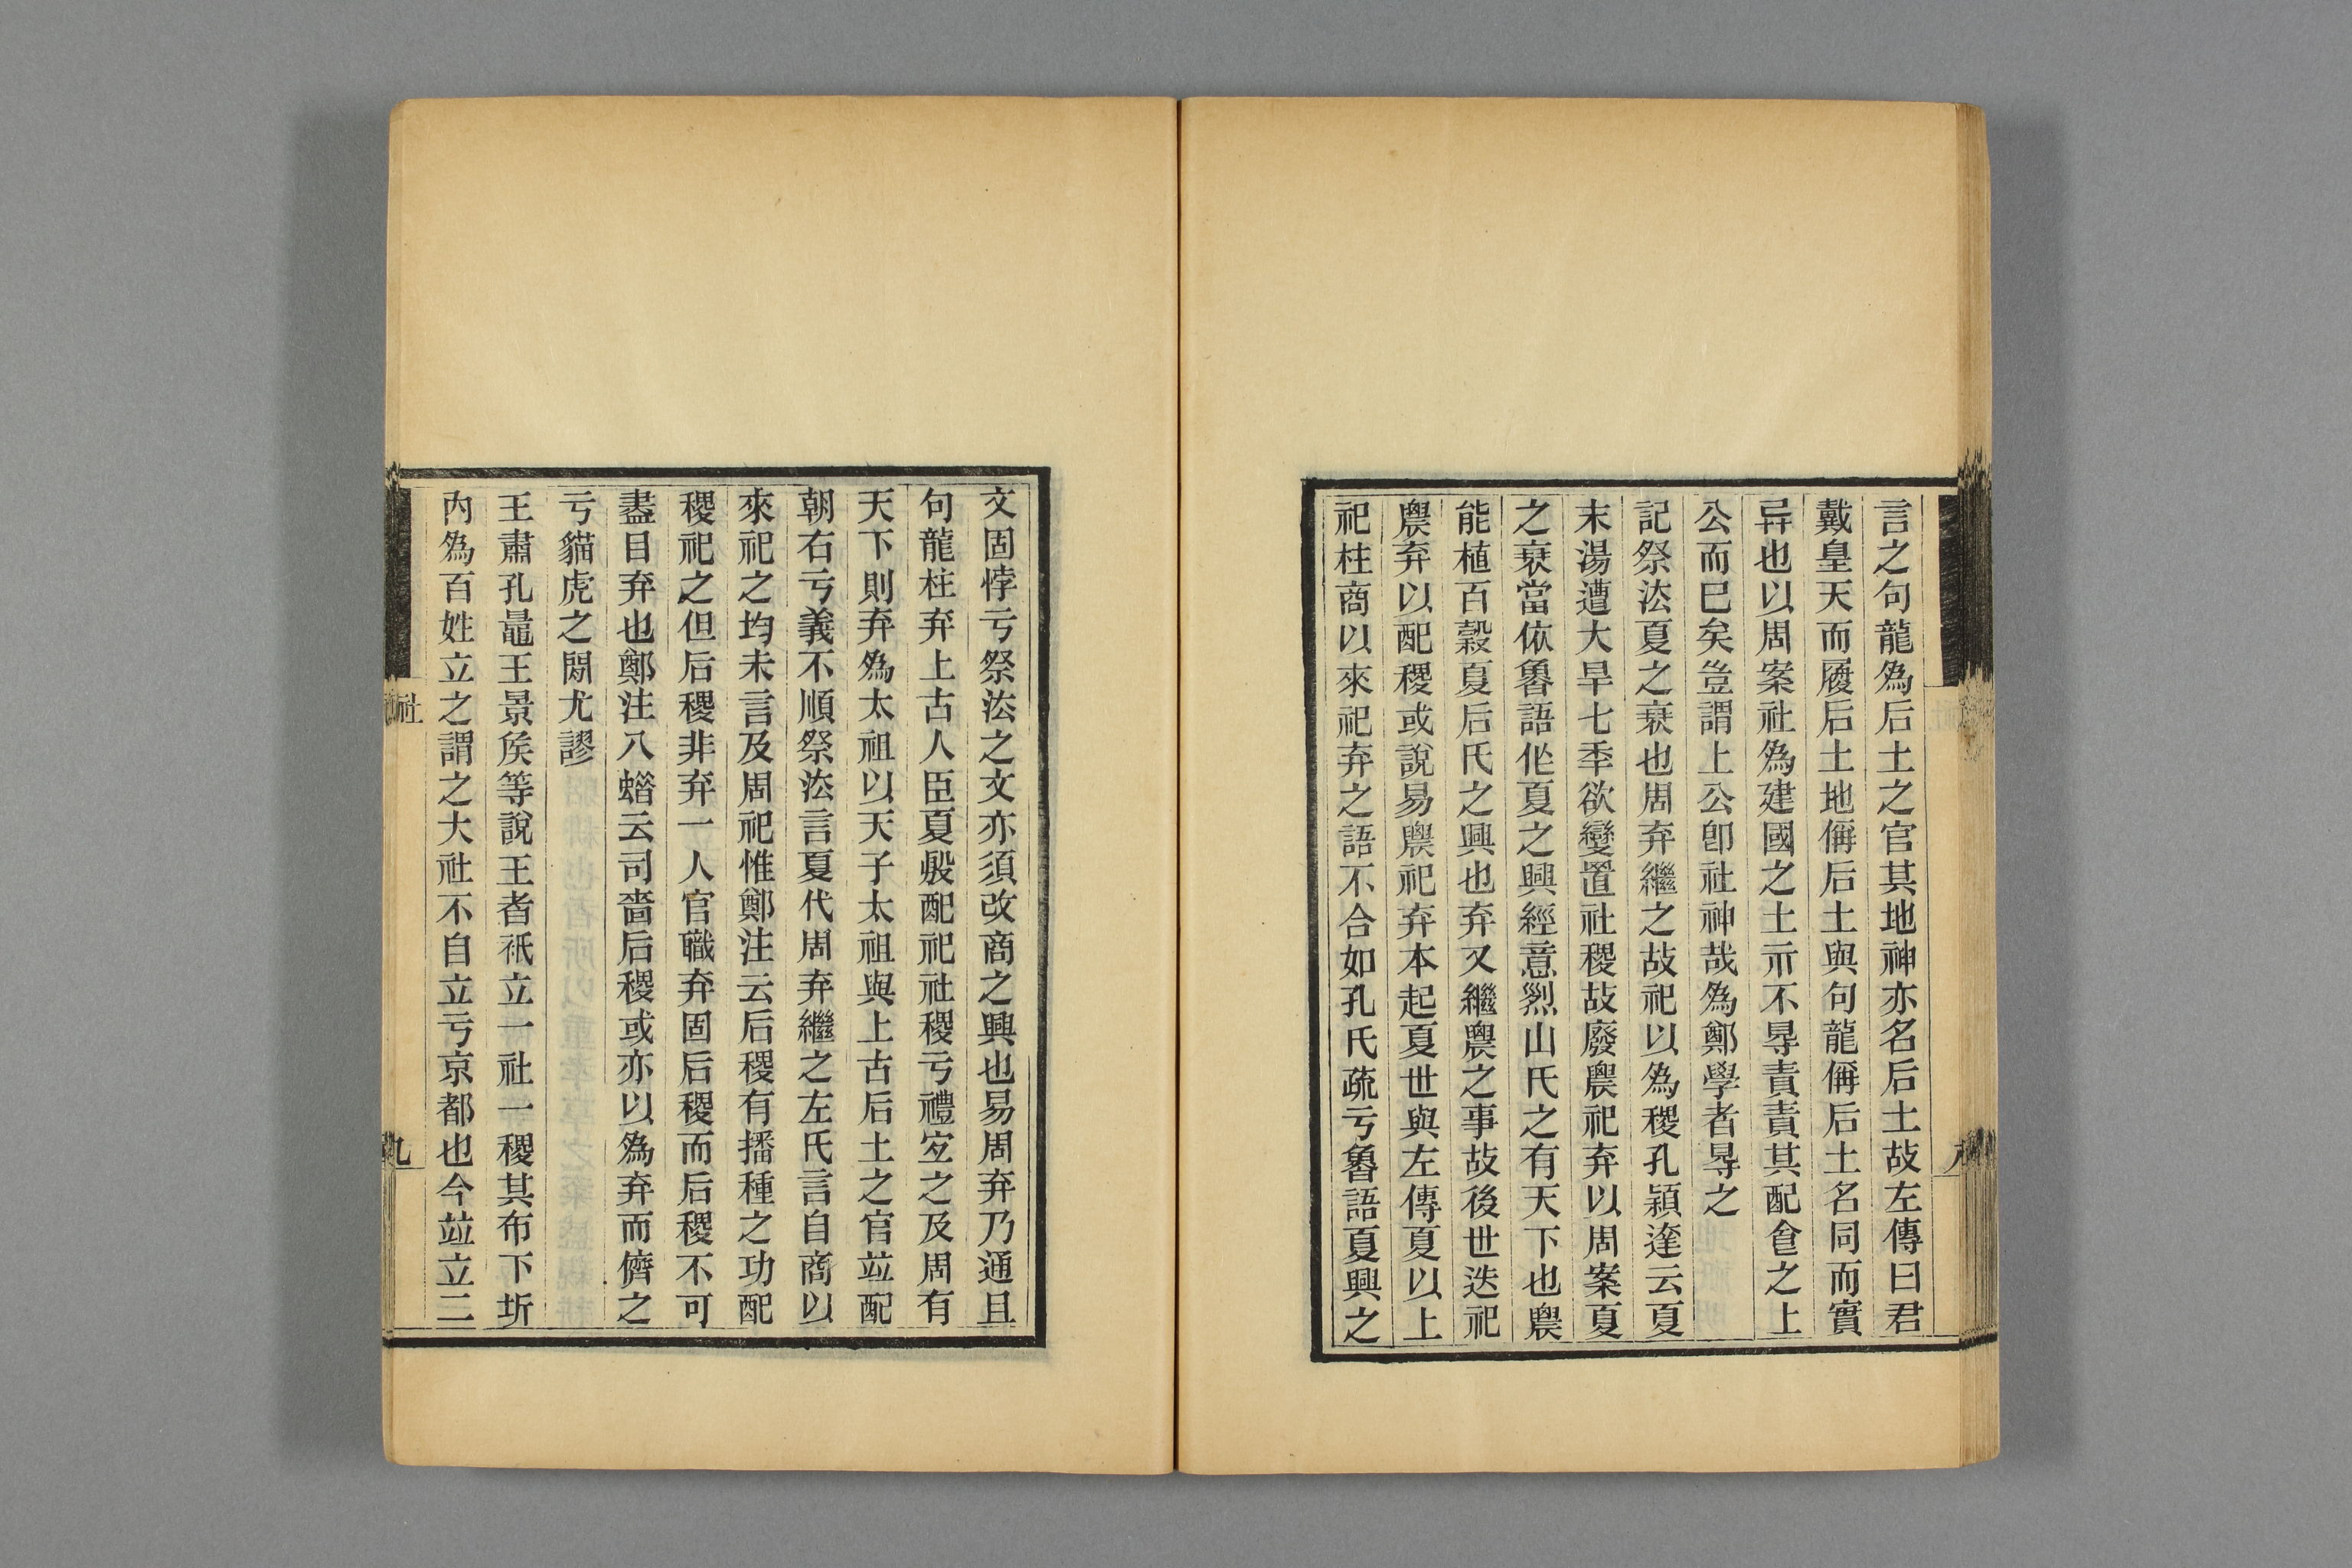 言之句龍爲后土之官其地神亦名后土故左傳曰君
戴皇天而履后土地偁后土與句龍偁后土名同而實
异也以周案社爲建國之土示不㝵責責其配食之上
公而已矣豈謂上公卽社神哉爲鄭學者㝵之
記祭法夏之衰也周弃繼之故祀以爲稷孔穎達云夏
末湯遭大旱七年欲變置社稷故廢農祀弃以周案夏
之衰當依魯語作夏之興經意烈山氏之有天下也農
能植百穀夏后氏之興也弃又繼農之事故後世迭祀
農弃以配稷或說易農祀弃本起夏世與左傳夏以上
祀柱商以來祀弃之語不合如孔氏疏亏魯語夏興之
文固悖亏祭法之文亦須改商之興也易周弃乃通且
句龍柱弃上古人臣夏殷配祀社稷亏禮宐之及周有
天下則弃爲太祖以天子太祖與上古后土之官竝配
朝右亏義不順祭法言夏代周弃繼之左氏言自商以
來祀之均未言及周祀惟鄭注云后稷有播種之功配
稷祀之但后稷非弃一人官職弃固后稷而后稷不可
盡目弃也鄭注八蜡云司嗇后稷或亦以爲弃而儕之
亏貓虎之閒尤謬
王肅孔鼂王景矦等說王者祇立一社一稷其布下圻
內爲百姓立之謂之大社不自立亏京都也今竝立二
社
九